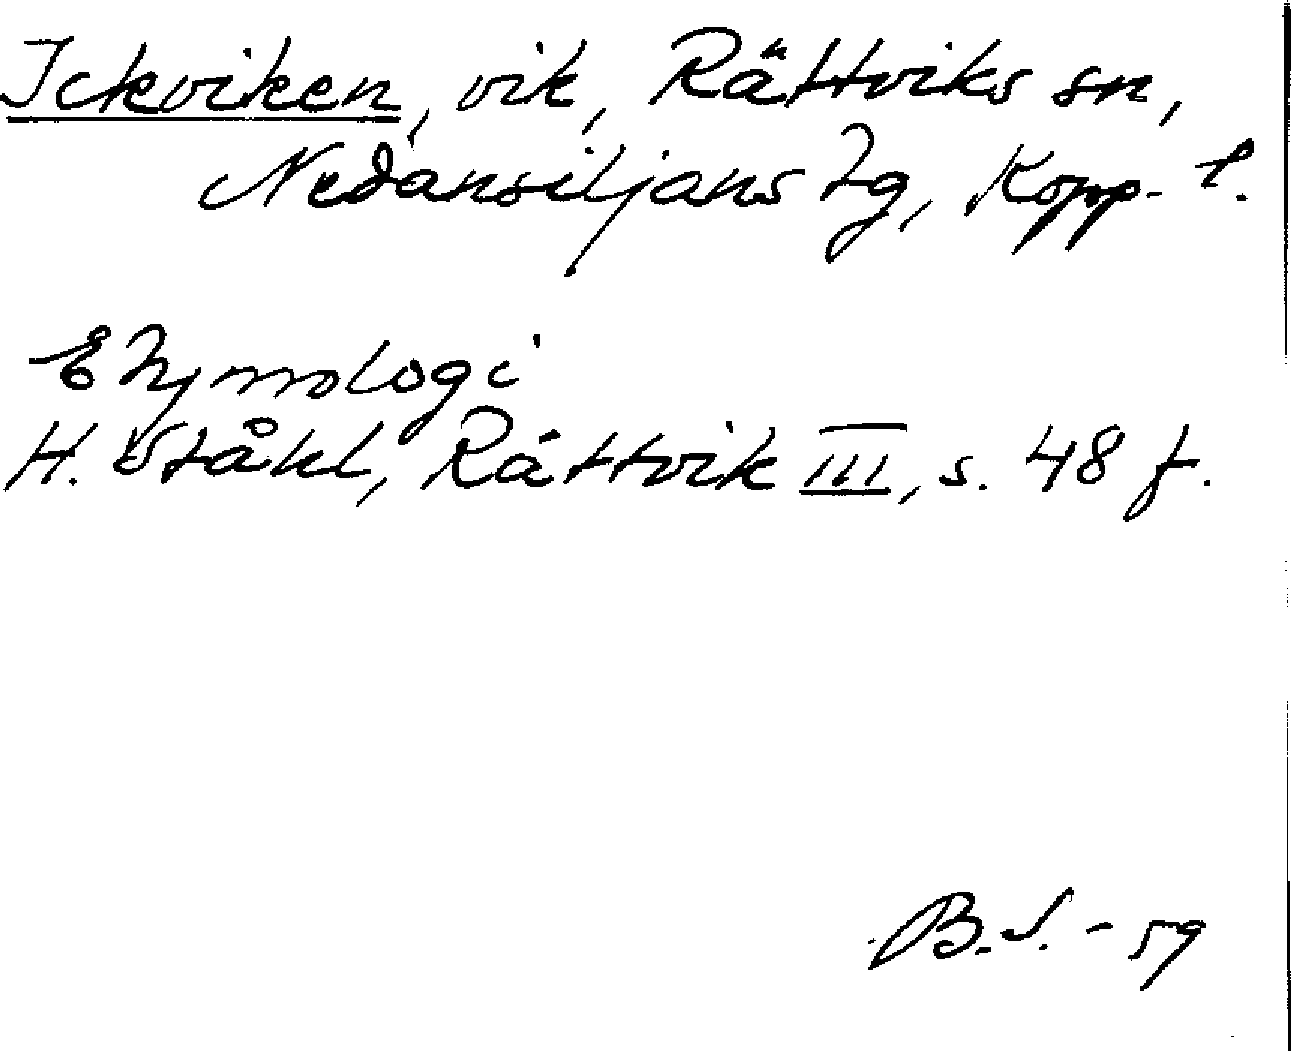 Ickviken, vik, Rättviks sn,
Nedansiljans tg, Kopp. l.
Etymologi
H. Ståhl, Rättvik III, s. 48 f.
B.S. - 59